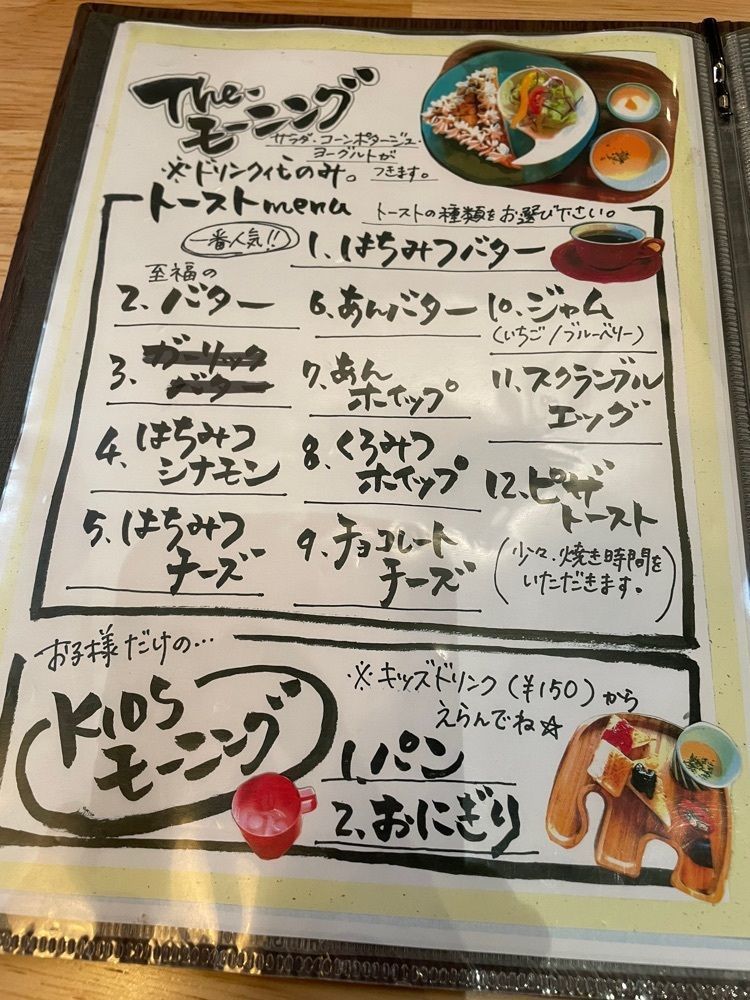 The・モーニング
サラダ・コーンポタージュ・
ヨーグルトが
つきます。
※ドリンク代のみ。
トーストmenu トーストの種類をお選び下さい。
一番人気!! 1、はちみつバター
至福の
2、バター
3、ガーリック
バター
4、はちみつ
シナモン
5、はちみつ
チーズ
6、あんバター
7、あん
ホイップ
8、くろみつ
ホイップ
9、チョコレート
チーズ
10、ジャム
(いちご/ブルーベリー)
11、スクランブル
エッグ
12、ピザ
トースト
(少々、焼き時間を
いただきます。)
お子様だけの…
KIDS
モーニング
※キッズドリンク(¥150)から
えらんでね☆
1、パン
2、おにぎり